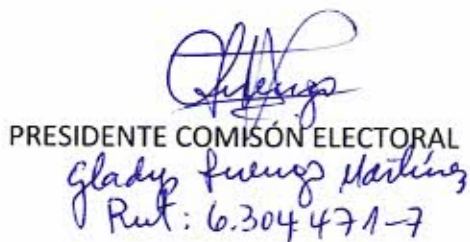 PRESIDENTE COMISÓN ELECTORAL
Gladys Luengo Martínez
Rut: 6.304471-7